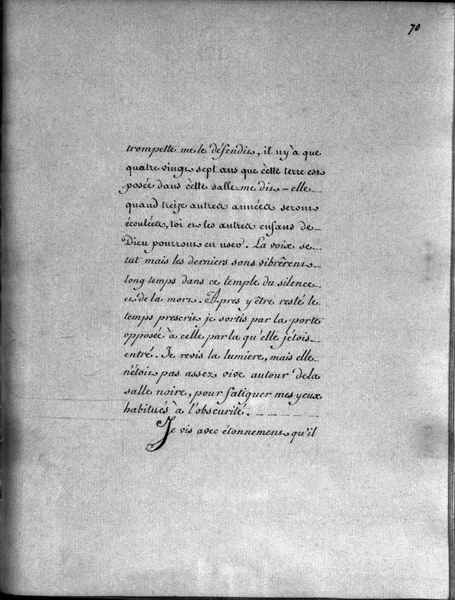 70
trompette me le défendit, il n'y a que
quatre vingt sept ans que cette terre est
posée dans cette salle me dit-elle
quand treize autres années seront
écoulées, toi et les autres enfans de
Dieu pourront en user. La voix se
tut mais les derniers sons vibrèrent
long temps dans ce temple du silence
et de la mort. Après y être resté le
temps prescrit je sortis par la porte
opposée à celle par la qu'elle j'étois
entré. Je revis la lumière, mais elle
n'étoit pas assez vive autour de la
salle noire, pour fatiguer mes yeux
habitués à l'obscurité.
Je vis avec étonnement qu'il